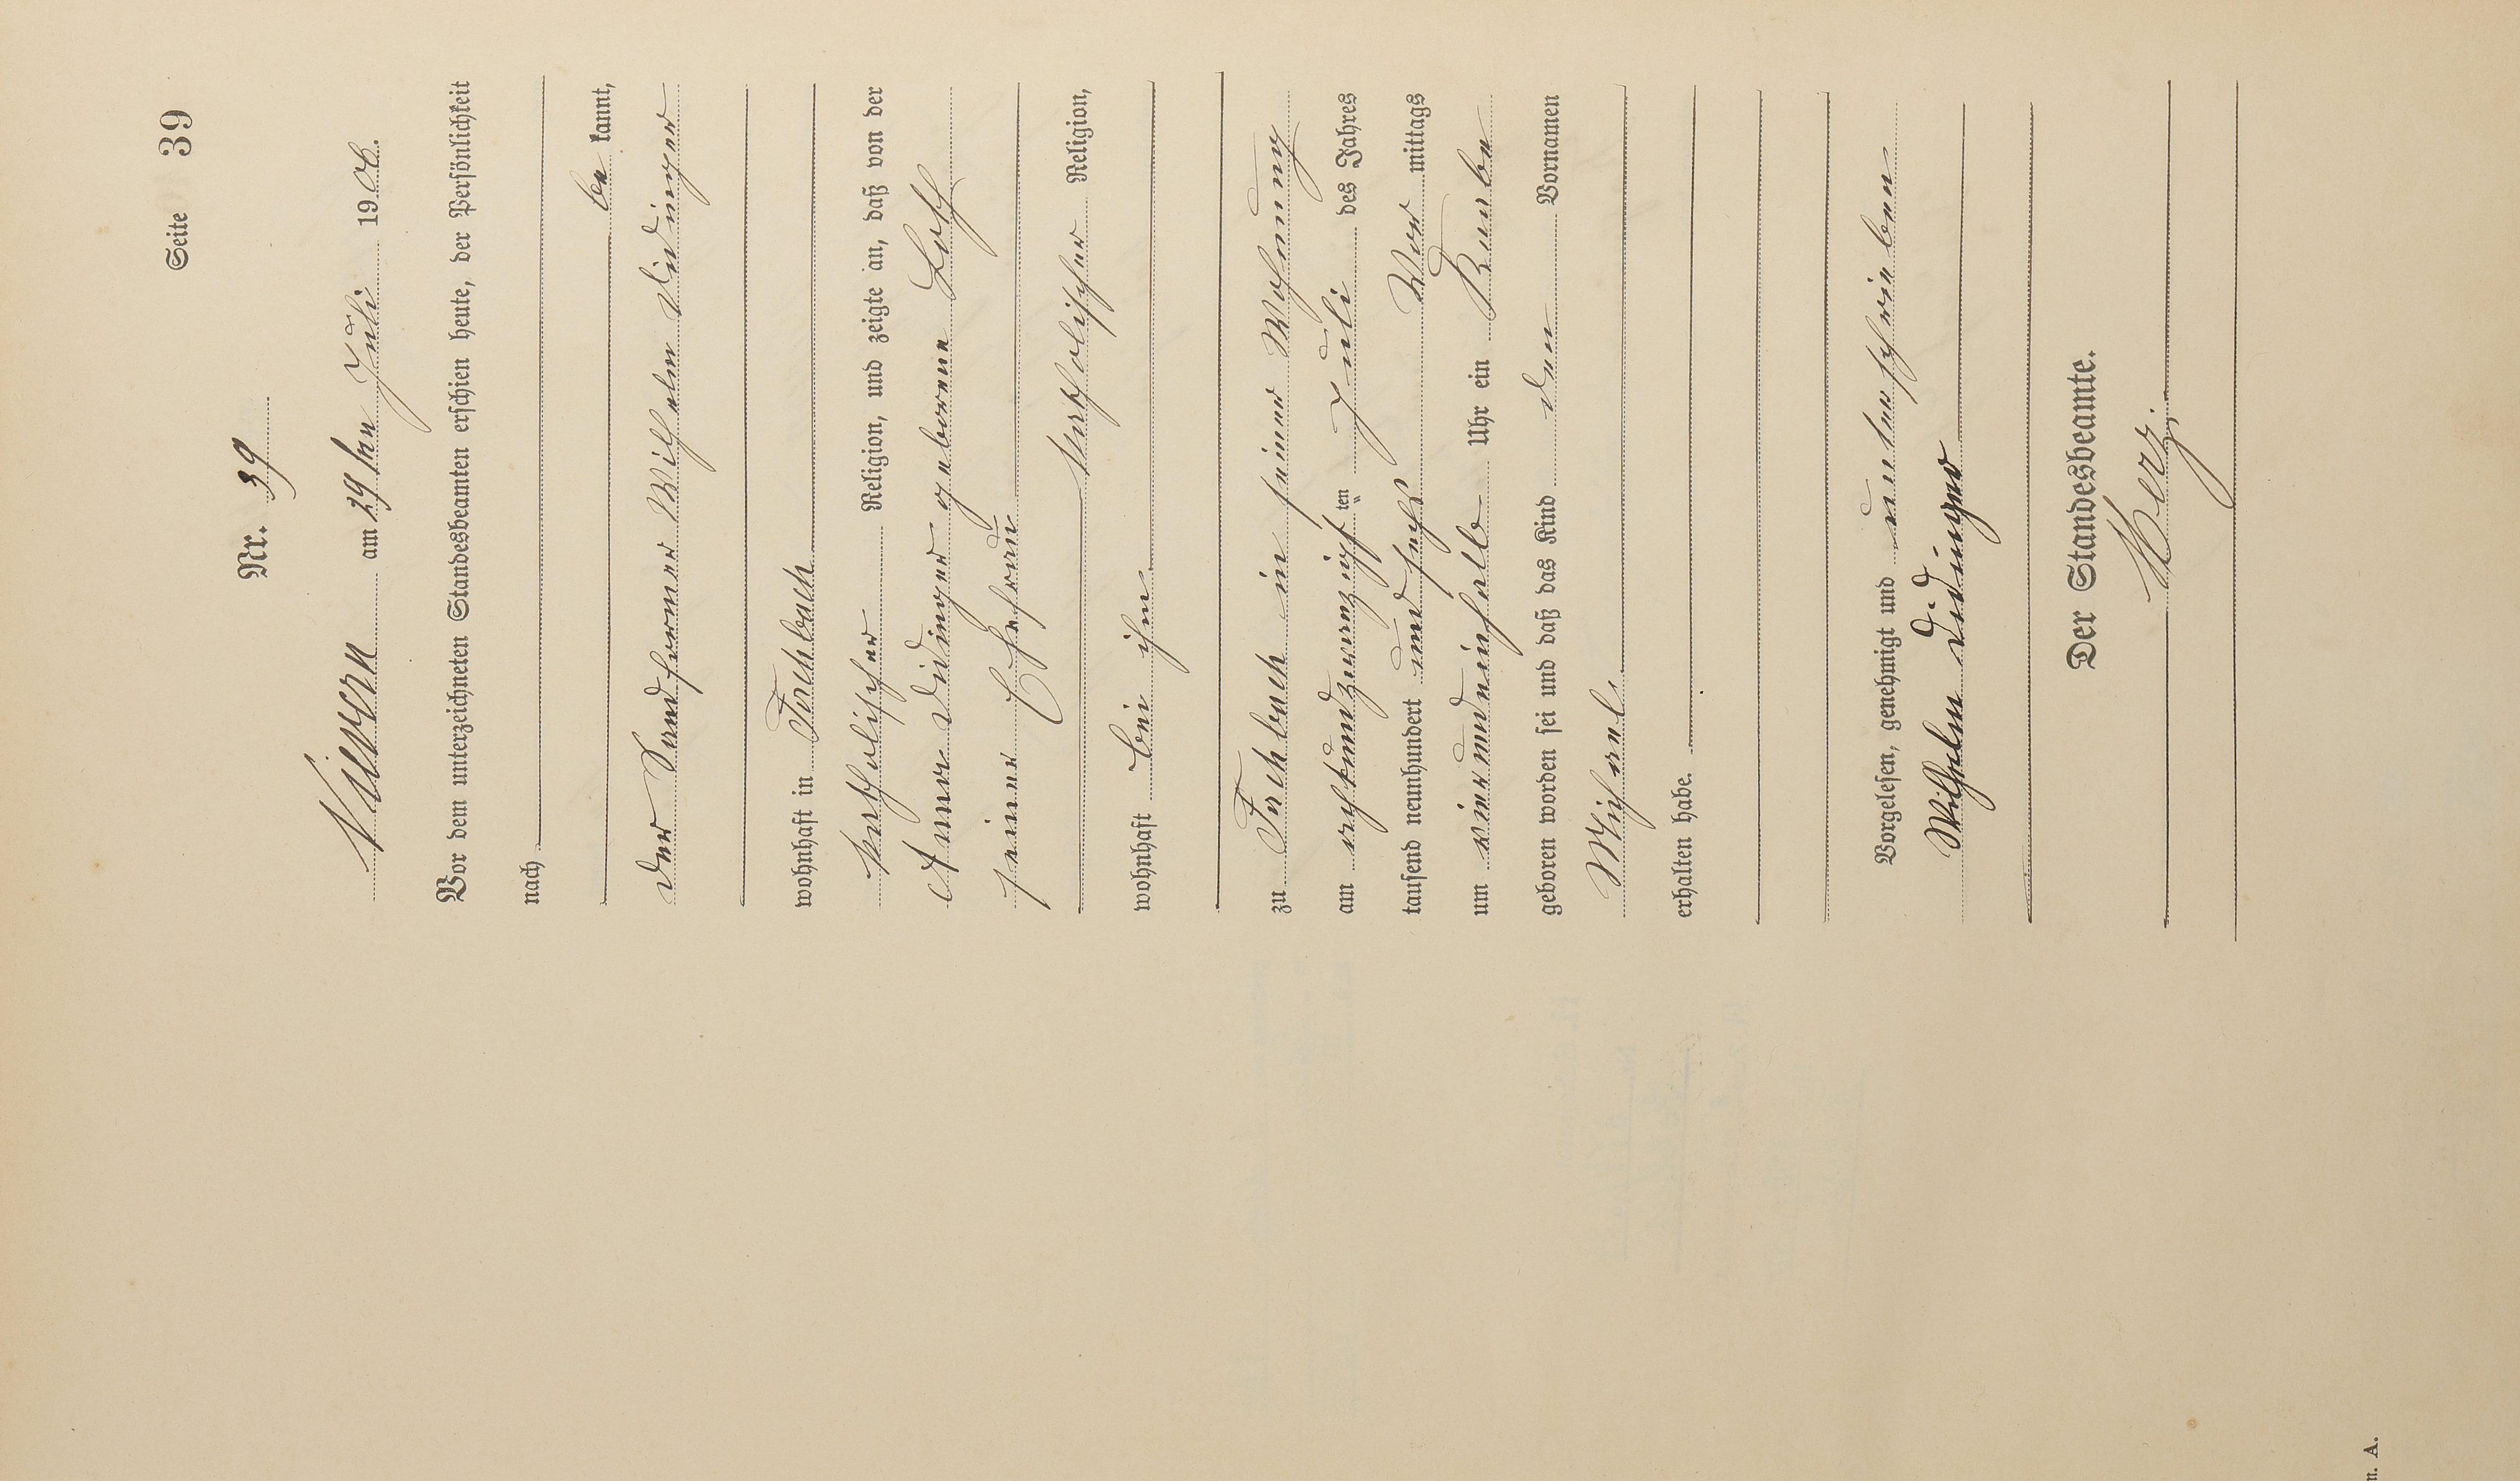 Seite 39
Nr. 39
Vilvern am 29ten Juli 1906.
Vor dem unterzeichneten Standesbeamten erschien heute, der Persönlichkeit
nach
be kannt,
der Sandformer Wilhelm Didinger
wohnhaft in Fischbach
katholischer Religion, und zeigte an, daß von der
Anna Didinger geborene Loth
seiner Ehefrau
katholischer Religion,
wohnhaft bei ihm
zu Fischbach in seiner Wohnung
am achtundzwanzigsten Juli des Jahres
tausend neunhundert und sechs Vor mittags
um vierundeinhalb Uhr ein Knabe
geboren worden sei und daß das Kind den Vornamen
Michael
erhalten habe.
Vorgelesen, genehmigt und unterschrieben
Wilhelm Didinger
Der Standesbeamte.
Herz.
n. A.